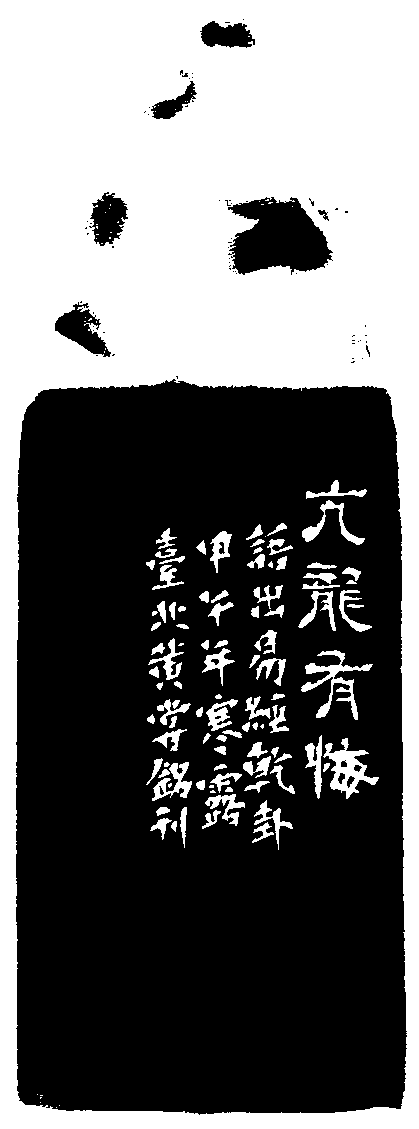 亢龍有悔
語出易經乾卦
甲午年寒露
臺北黃嘗銘刊